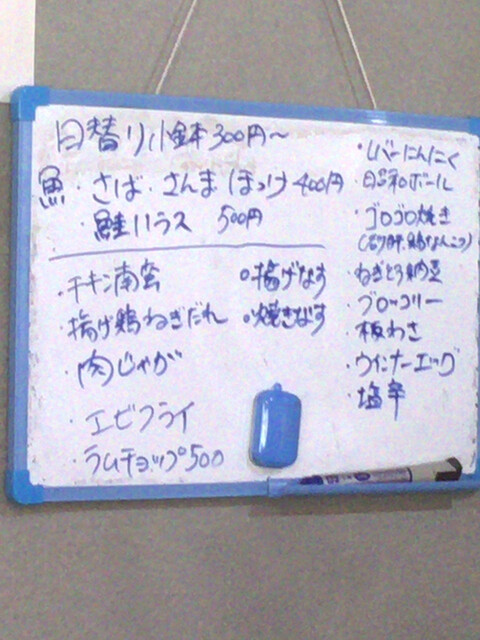 日替り小鉢300円~
魚・さば・さんま ほっけ 400円
・鮭ハラス 500円
・チキン南蛮
・揚げ鶏ねぎだれ
・肉じゃが
・エビフライ
・ラムチョップ500
・揚げなす
・焼きなす
・レバーにんにく
・ボール
・ゴロゴロ焼き
鶏なんこつ)
・ねぎとろ納豆
・ブロッコリー
・板わさ
・ウインナーエッグ
・塩辛